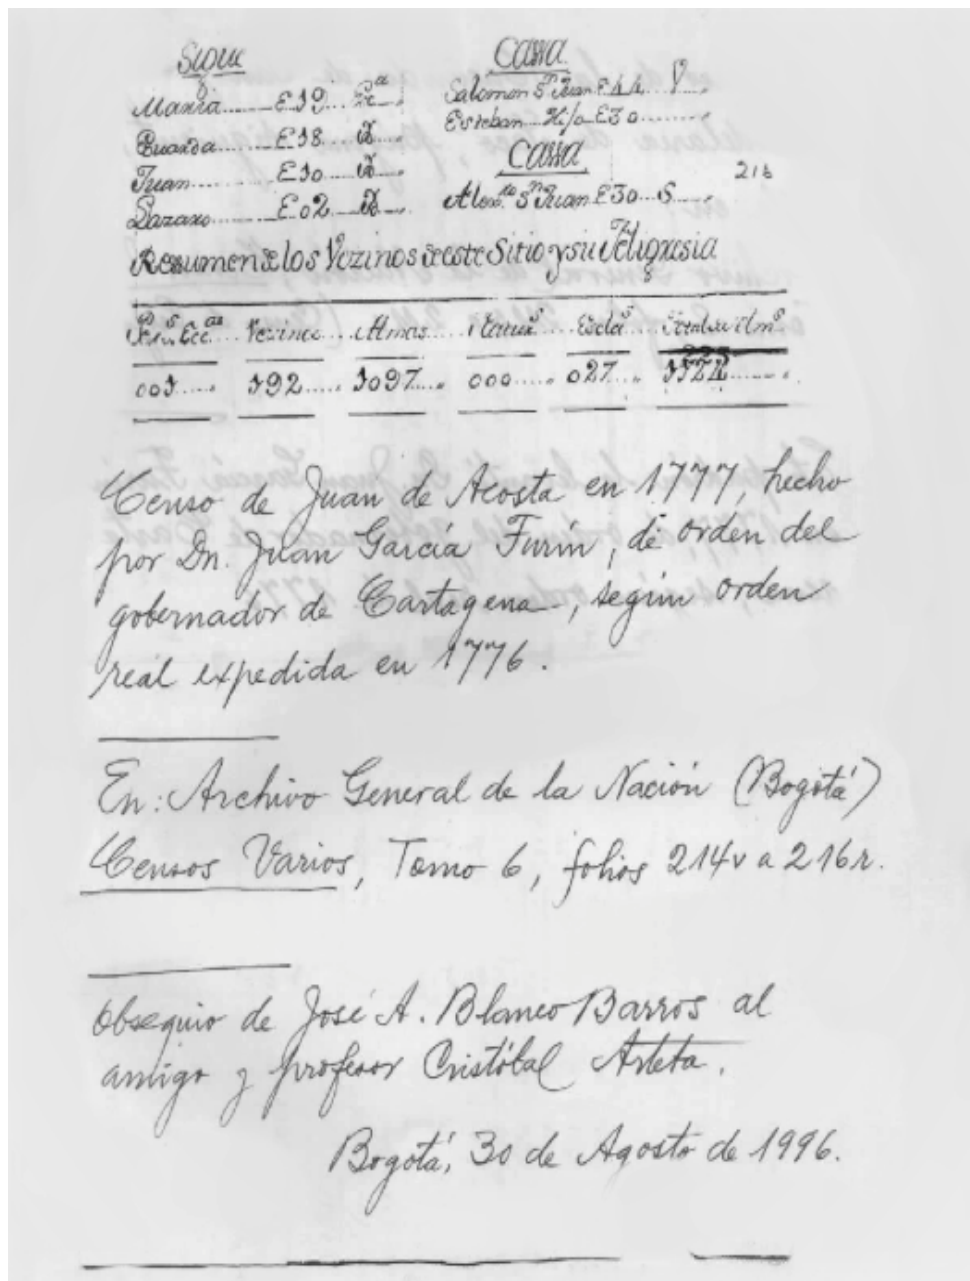 Sigue
Maxia E19
E18
Juan E10
Lazaro E02
Cassa
Salomon Sn Juan E44 V
Esteban Hijo E30
Cassa
216
Alexo Sn Juan E30 S
Resumen de los Vezinos de este Sitio y su Feligrasia
Vezinos Almas Esclas
001 192 1097 000 027
Censo de Juan de Acosta en 1777, hecho
por Dn. Juan García Turín, de orden del
gobernador de Cartagena, según orden
real expedida en 1776.
En: Archivo General de la Nación (Bogotá)
Censos Varios, Tomo 6, folios 214v a 216r.
Obsequio de José A. Blanco Barros al
amigo y profesor Cristóbal Arteta.
Bogotá, 30 de Agosto de 1996.